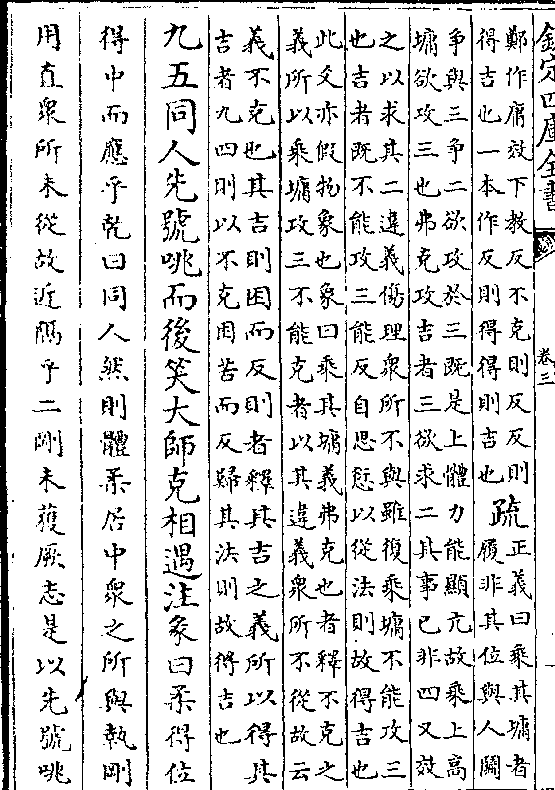 欽定四庫全書 卷三
鄭作庸效下教反不克則反反則
得吉也一本作反則得得則吉也
疏
正義曰乘其墉者
履非其位與人鬭
争與三争二欲攻於三既是上體力能顯亢故乘上高
墉欲攻三也弗克攻吉者三欲求二其事已非四又效
之以求其二違義傷理衆所不與雖復乘墉不能攻三
也吉者既不能攻三能反自思愆以從法則故得吉也
此爻亦假物象也象曰乘其墉義弗克也者釋不克之
義所以乘墉攻三不能克者以其違義衆所不從故云
義不克也其吉則困而反則者釋其吉之義所以得其
吉者九四則以不克困苦而反歸其法則故得吉也
九五同人先號咷而後笑大師克相遇注彖曰柔得位
得中而應乎乾曰同人然則體柔居中衆之所與執剛
用直衆所未從故近隔乎二剛未獲厥志是以先號咷